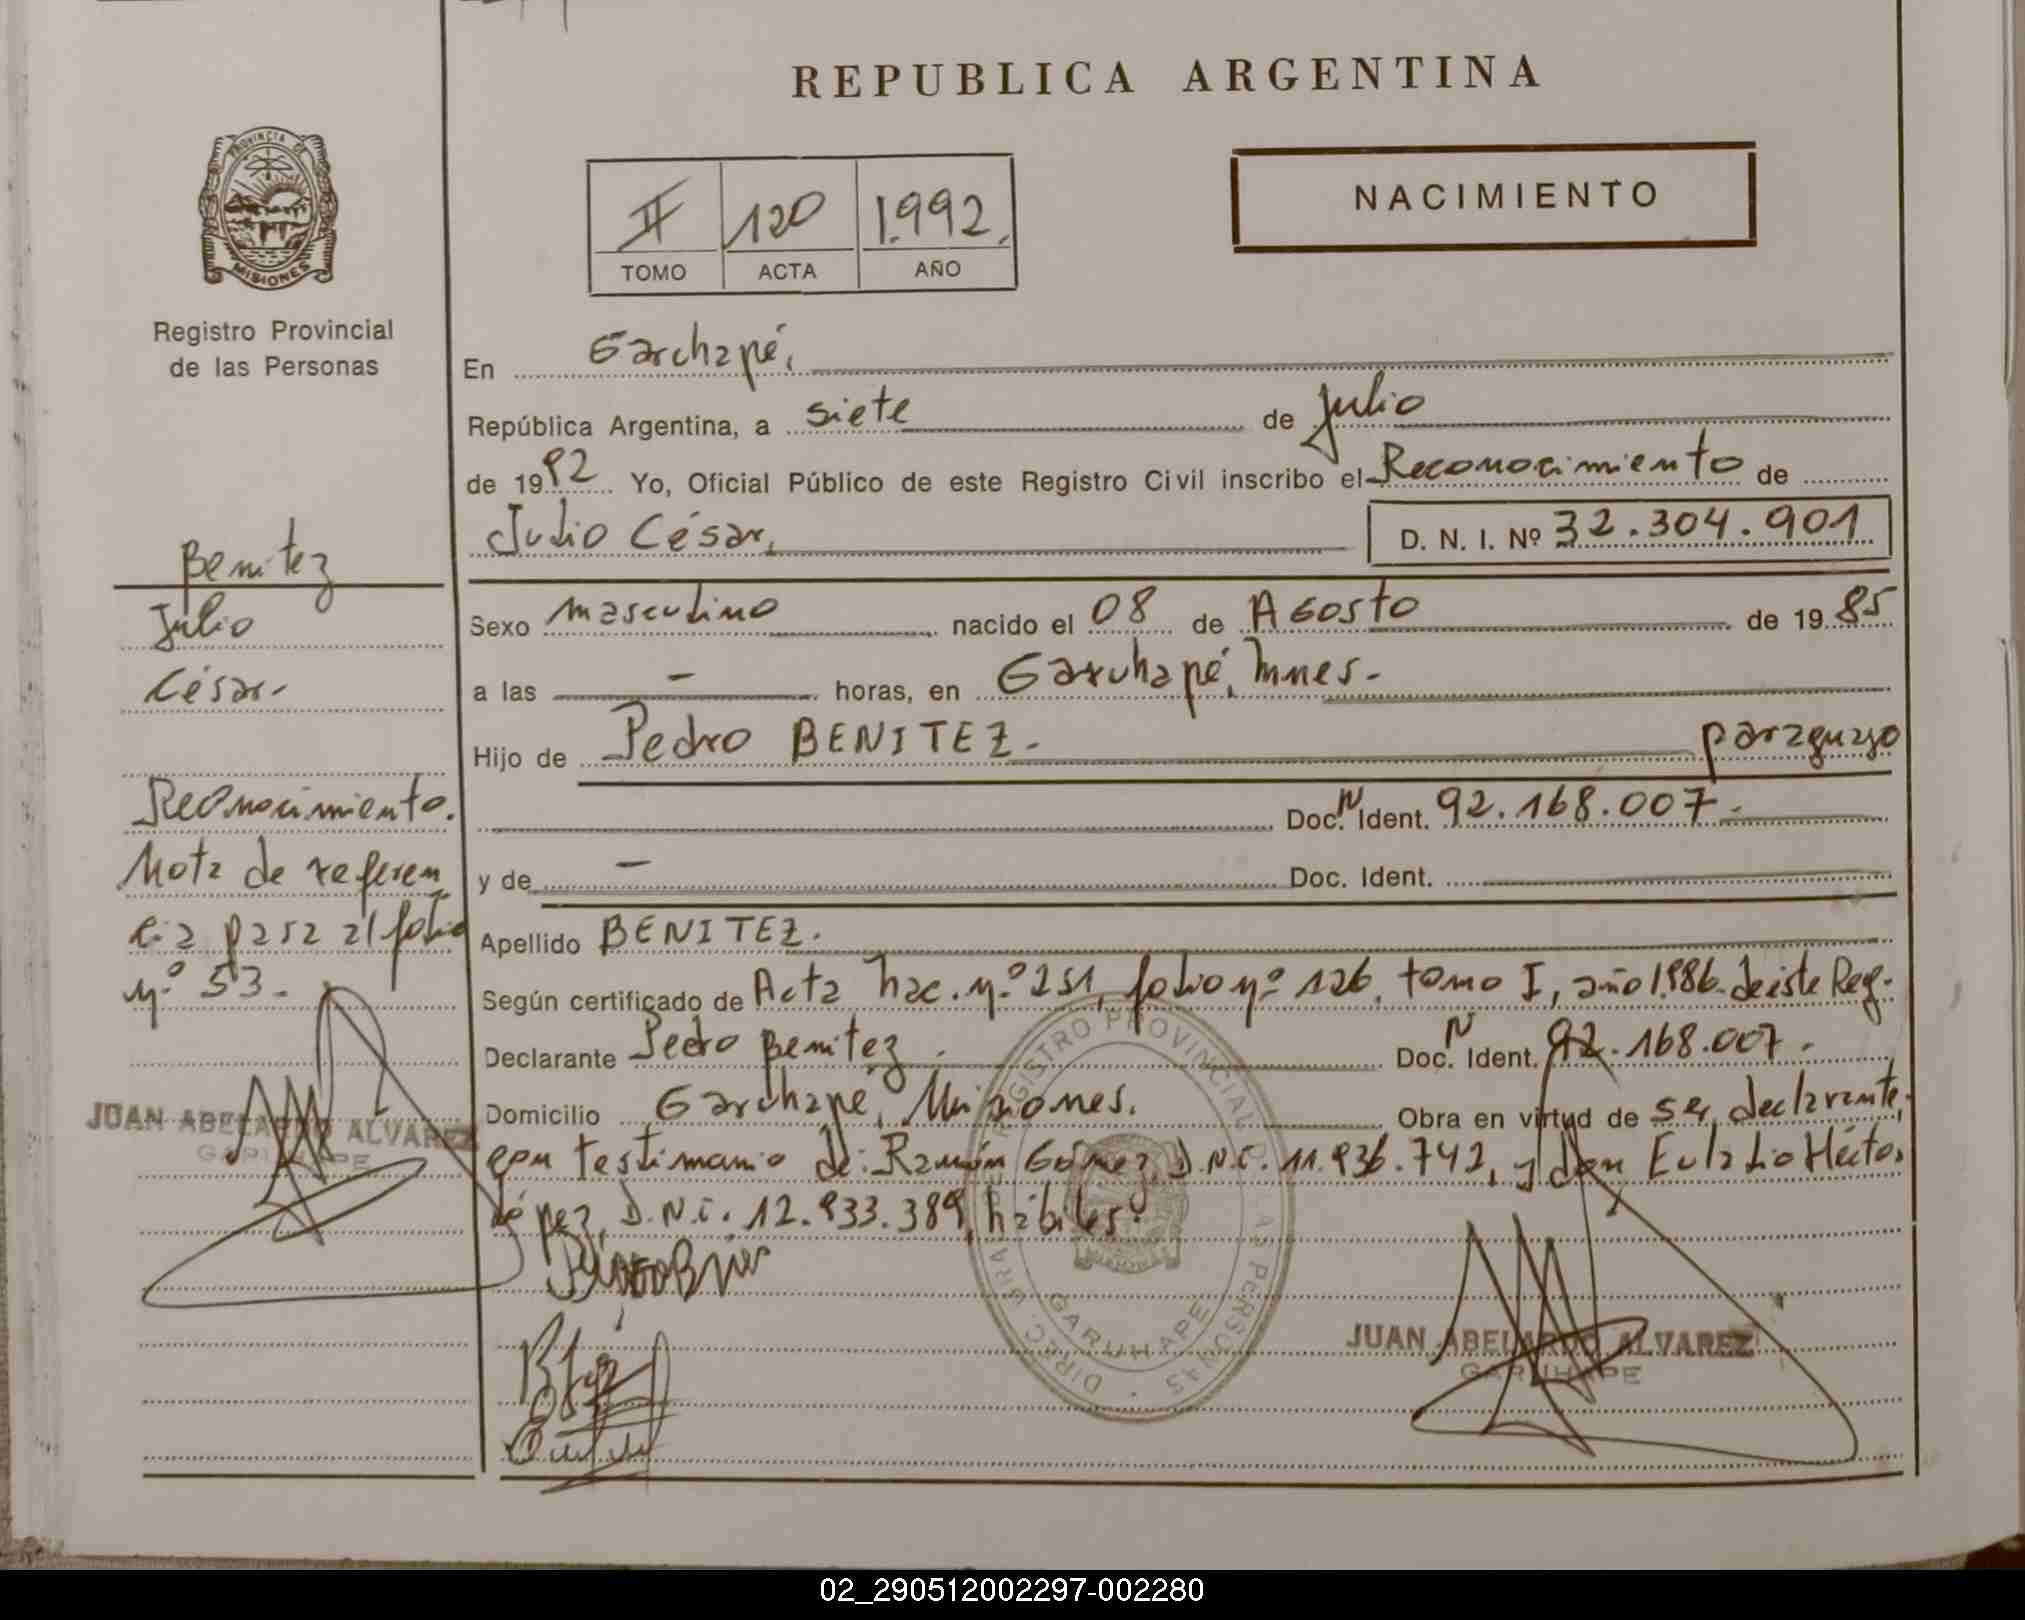 REPUBLICA ARGENTINA
PROVINCIA DE
MISIONES
Registro Provincial
de las Personas
II 120 1.992.
TOMO ACTA AÑO
NACIMIENTO
En Garuhapé,
República Argentina, a siete de Julio
de 1992 Yo, Oficial Público de este Registro Civil inscribo el Reconocimiento de
Julio César, D. N. I. Nº 32.304.901
Benitez
Julio
César.-
Reconocimiento.
Nota de referen
cia pasa al folio
nº 53.-
JUAN ABELARDO ALVAREZ
GARUHAPE
Sexo masculino nacido el 08 de Agosto de 1985
a las - horas, en Garuhapé, Mnes.-
Hijo de Pedro BENITEZ.- paraguayo
Doc. N Ident. 92.168.007.-
y de - Doc. Ident.
Apellido BENITEZ.
Según certificado de Acta Nac. nº 251, folio nº 126, tomo I, año 1.986 de este Reg.
Declarante Pedro Benitez. Doc. N Ident. 92.168.007.
Domicilio Garuhapé, Misiones. Obra en virtud de ser declarante,
con testimonio de: Ramón Gómez, D.N.I. 11.936.742, y don Eulalio Héctor
López, D.N.I. 12.933.389, hábiles.
DIREC. REGISTRO PROVINCIAL DE LAS PERSONAS
GARUHAPE
JUAN ABELARDO ALVAREZ
GARUHAPE
02_290512002297-002280